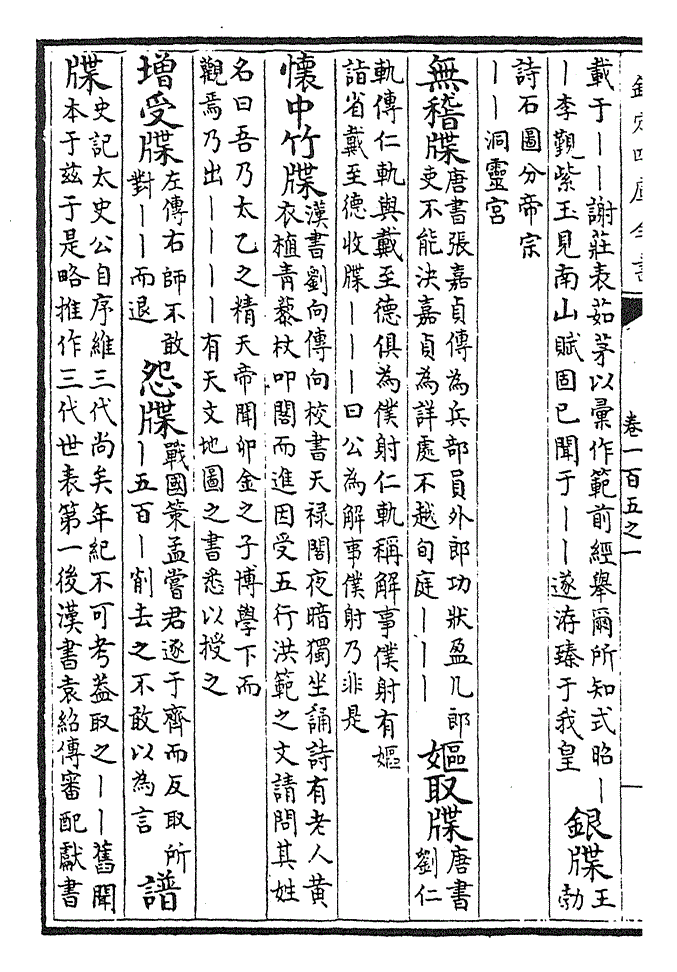 欽定四庫全書
卷一百五之一
載于丨丨謝莊表茹茅以彙作範前經舉爾所知式昭丨
丨李覯紫玉見南山賦固已聞于丨丨遂洊臻于我皇
銀牒
王
勃
詩石圖分帝宗
丨丨洞靈宮
無稽牒
唐書張嘉貞傳為兵部員外郎功狀盈几郎
吏不能決嘉貞為詳處不越旬庭丨丨丨
嫗取牒
唐書
劉仁
軌傳仁軌與戴至德俱為僕射仁軌稱解事僕射有嫗
詣省戴至德收牒丨丨丨曰公為解事僕射乃非是
懷中竹牒
漢書劉向傳向校書天禄閣夜暗獨坐誦詩有老人黃
衣植青藜杖叩閣而進因受五行洪範之文請問其姓
名曰吾乃太乙之精天帝聞卯金之子博學下而
觀焉乃出丨丨丨丨有天文地圖之書悉以授之
增受牒
左傳右師不敢
對丨丨而退
怨牒
戰國策孟嘗君逐于齊而反取所
丨五百丨削去之不敢以為言
譜
牒
史記太史公自序維三代尚矣年紀不可考葢取之丨丨舊聞
本于茲于是略推作三代世表第一後漢書袁紹傳審配獻書